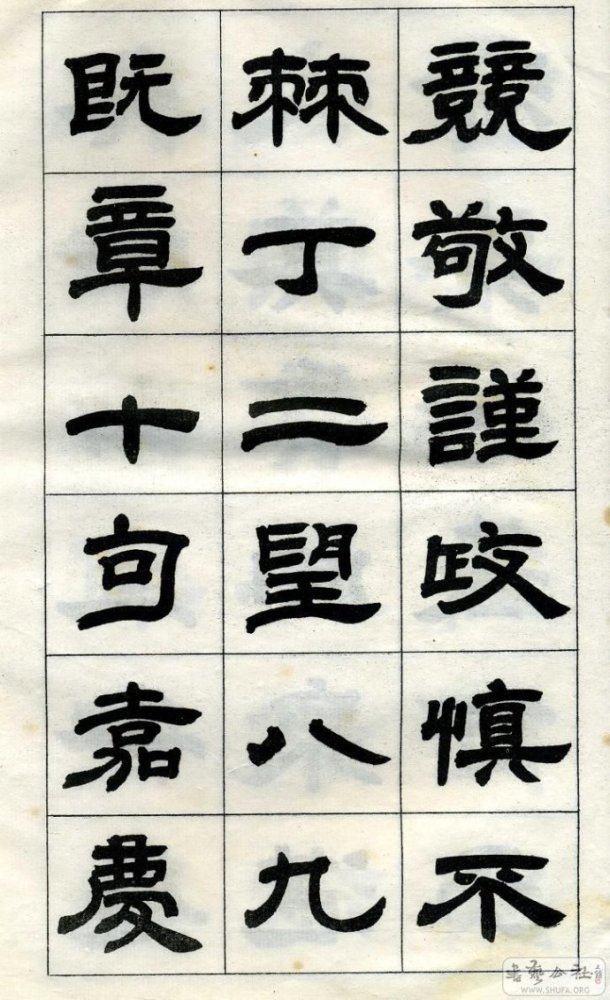 競敬謹政慎不
棘丁二望八九
既章十句嘉慶
书艺公社
WWW.SHUFA.ORG